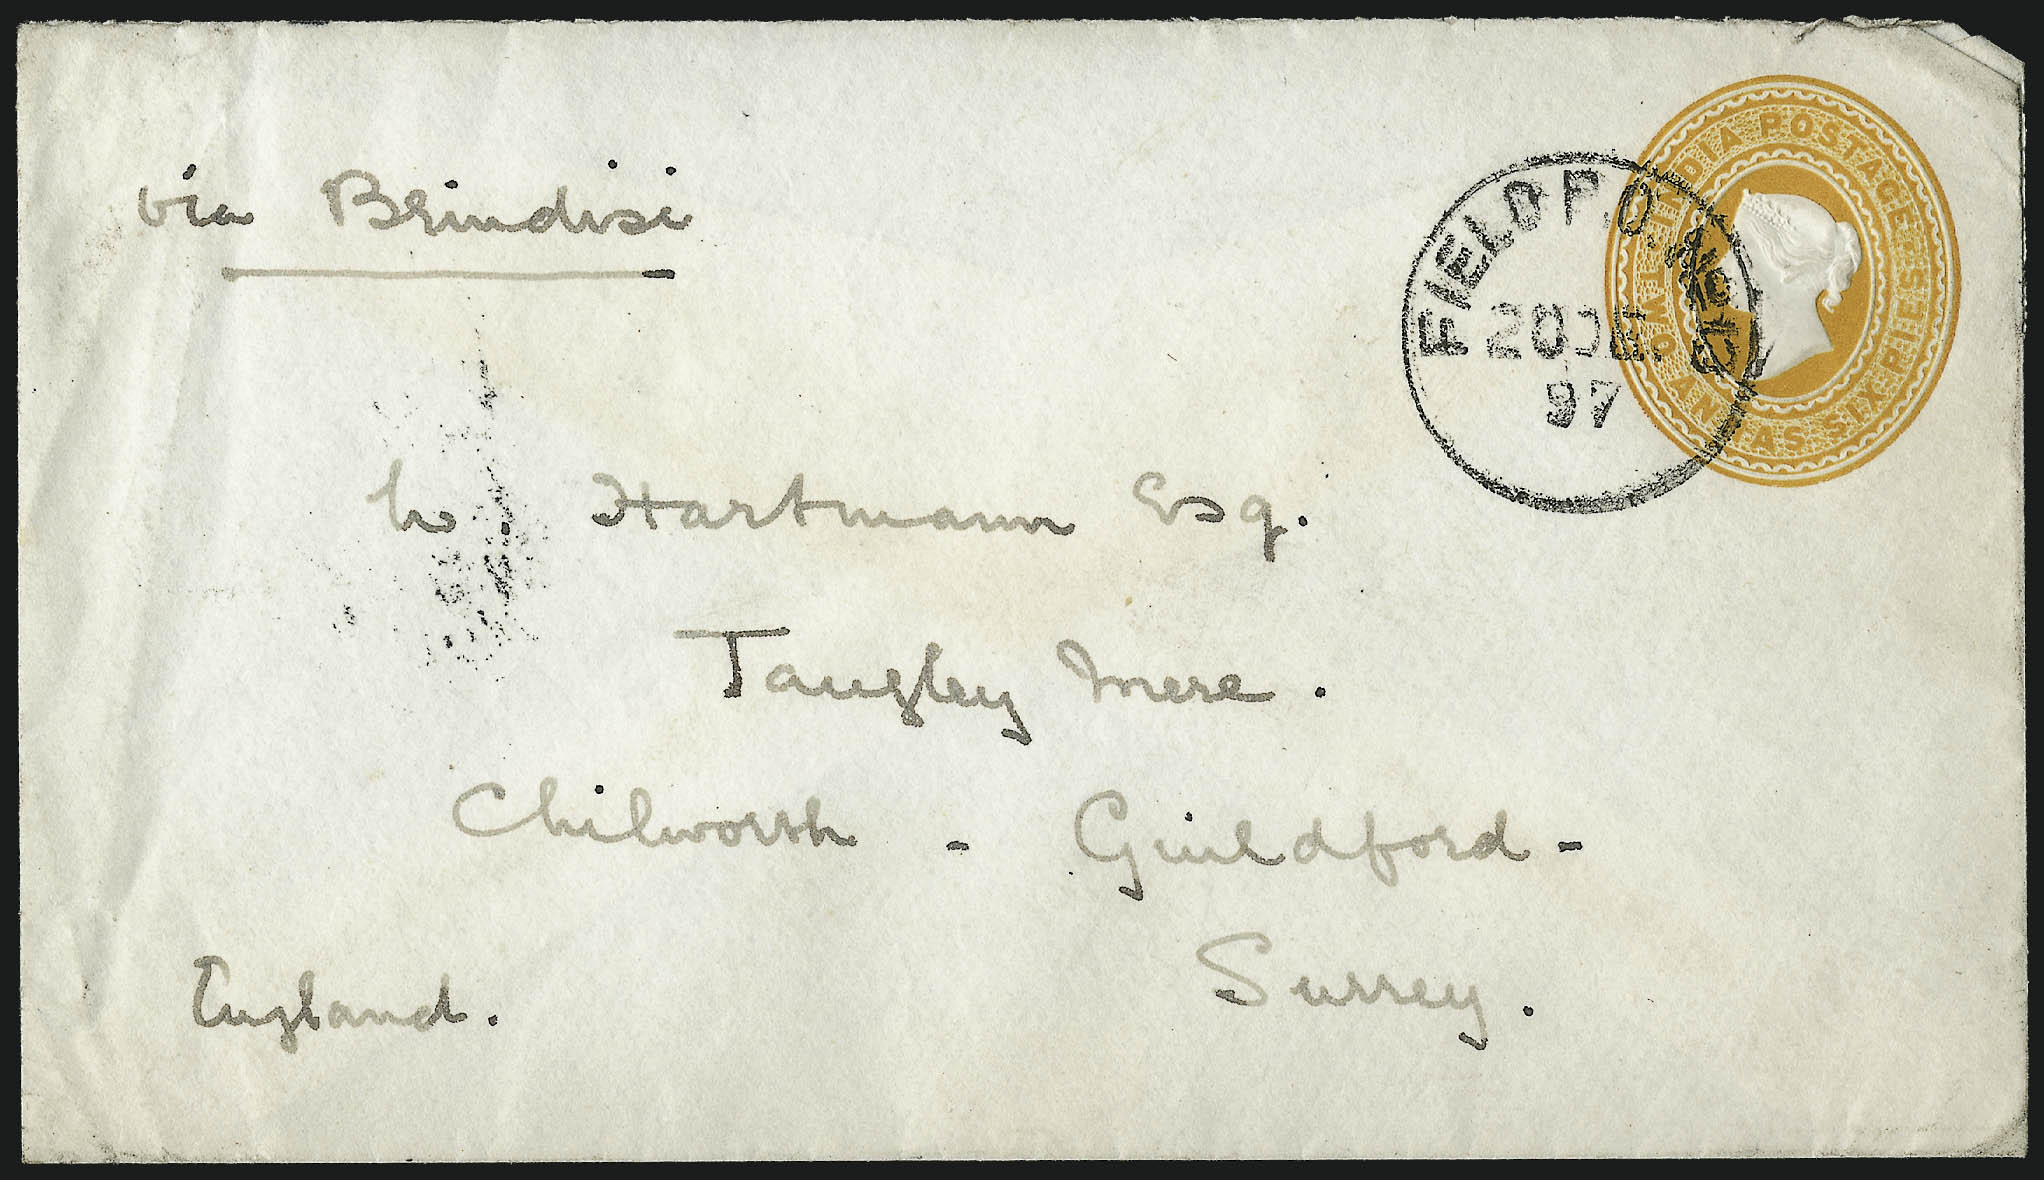 INDIA POSTAGE
TWO ANNAS SIX PIES
FIELD P.O. No.
20 DE
97
via Brindisi
W. Hartmann Esq.
Tangley Mere.
Chilworth - Guildford -
Surrey.
England.